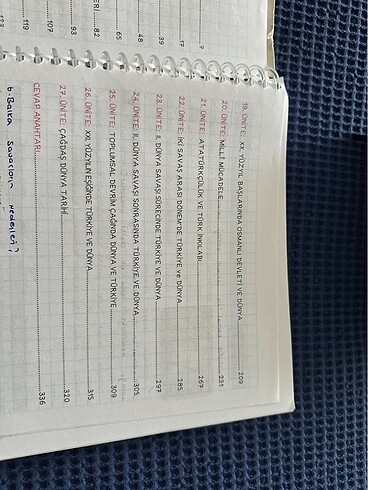 19. ÜNİTE: XX. YÜZYIL BAŞLARINDA OSMANLI DEVLETİ VE DÜNYA 209
20. ÜNİTE: MİLLİ MÜCADELE 231
21. ÜNİTE: ATATÜRKÇÜLÜK VE TÜRK İNKILABI 267
22. ÜNİTE: İKİ SAVAŞ ARASI DÖNEM'DE TÜRKİYE VE DÜNYA 285
23. ÜNİTE: II. DÜNYA SAVAŞI SÜRECİNDE TÜRKİYE VE DÜNYA 297
24. ÜNİTE: II. DÜNYA SAVAŞI SONRASINDA TÜRKİYE VE DÜNYA 305
25. ÜNİTE: TOPLUMSAL DEVRİM ÇAĞINDA DÜNYA VE TÜRKİYE 309
26. ÜNİTE: XXI. YÜZYILIN EŞİĞİNDE TÜRKİYE VE DÜNYA 315
27. ÜNİTE: ÇAĞDAŞ DÜNYA TARİHİ 320
CEVAP ANAHTARI 336
6. Balkan Savaşların nedenleri?
7
17
39
48
65
ERİ 82
93
107
119